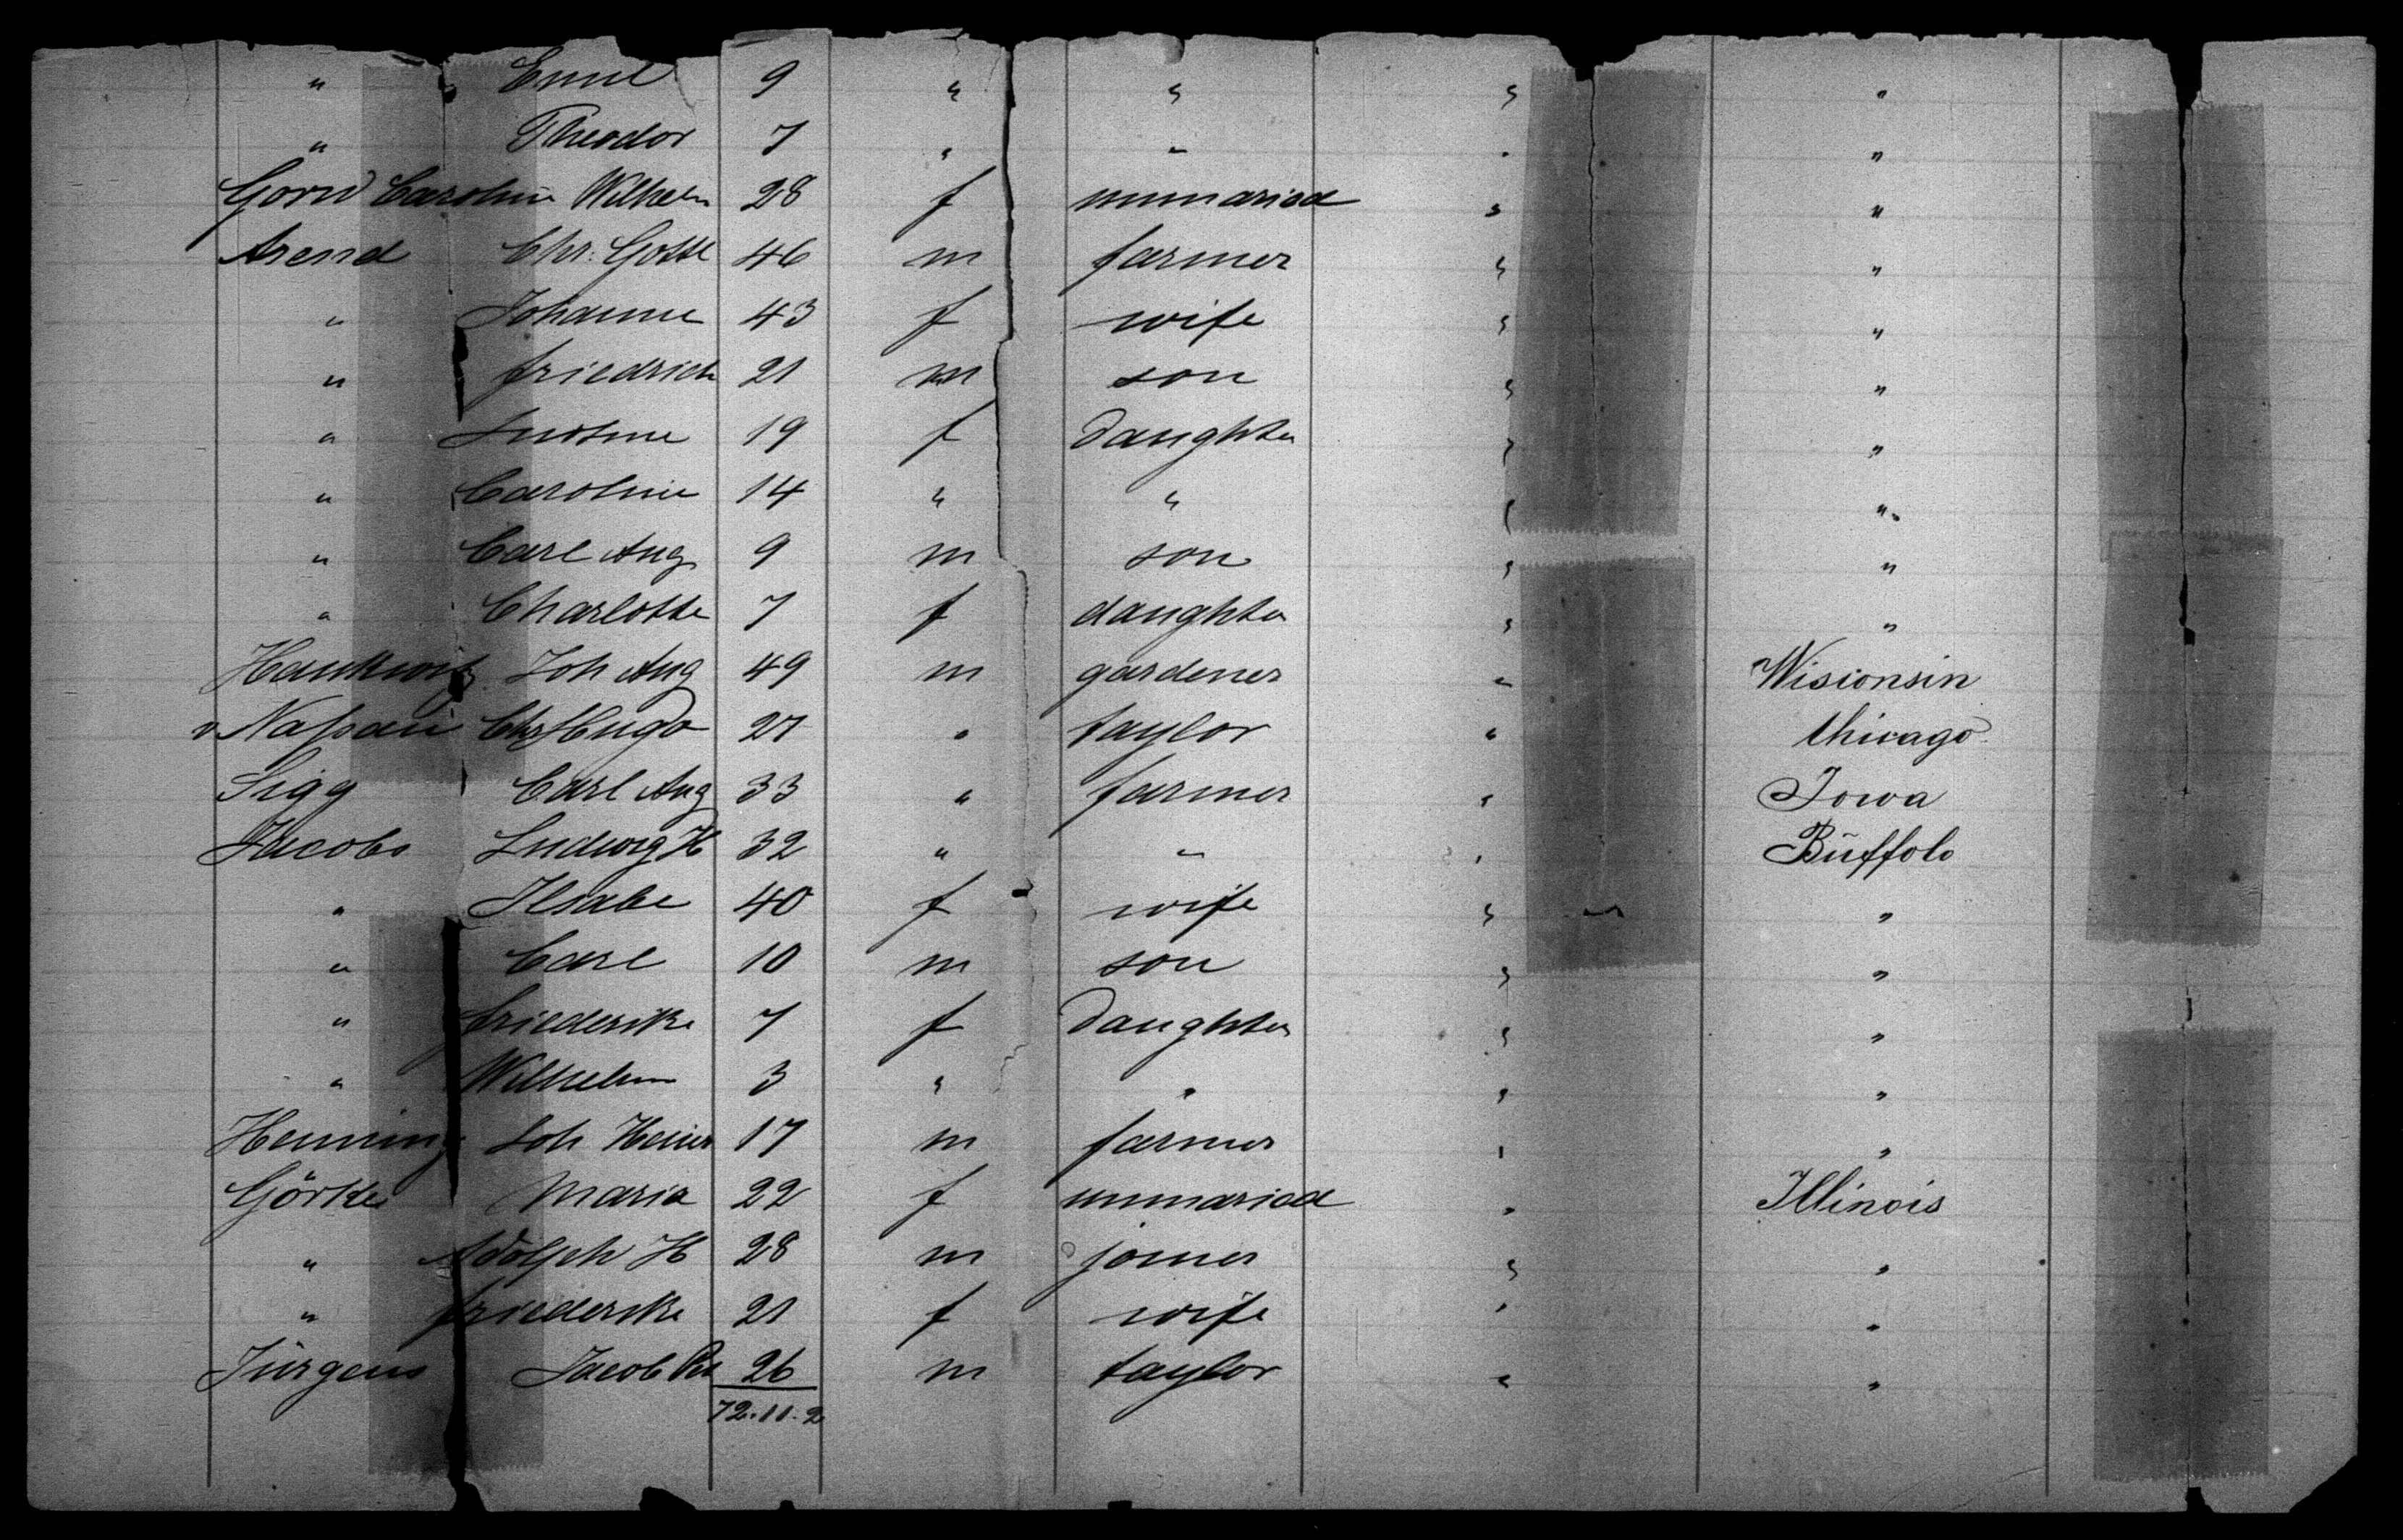 " Emil 9 " " " "
" Theodor 7 " " " "
Caroline Wilhelm 28 f unmaried " "
Arend Chr: Gottl 46 m farmer " "
" Johanne 43 f wife " "
" Friedrich 21 m son " "
" 19 f daughter " "
" Caroline 14 " " " "
" Carl Aug 9 m son " "
" Charlotte 7 f daughter " "
Joh Aug 49 m gardener " Wisionsin
v Naßau Chr Hugo 27 " taylor " Chicago
Sigg Carl Aug 33 " farmer " Iowa
Jacobs Ludwig H 32 " " " Büffolo
" Ilsabe 40 f wife " "
" Carl 10 m son " "
" Friederike 7 f daughter " "
" Wilhelm 3 " " " "
Henning Joh Heinr 17 m farmer " "
Görke Maria 22 f unmaried " Illinois
" Adolph H 28 m joiner " "
" Friederike 21 f wife " "
Jürgens Jacob 26 m taylor " "
72.11.2